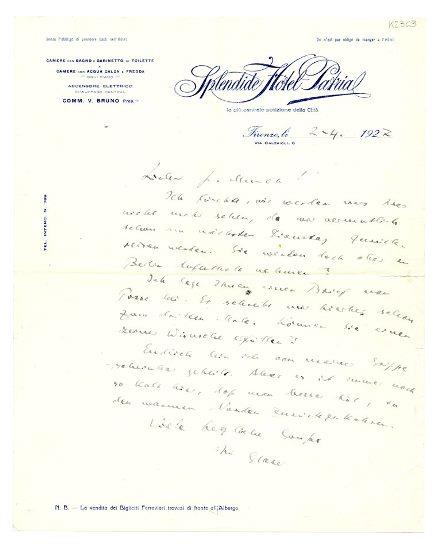 K2303
Senza l'obbligo di prendere pasti nell'Hôtel
On n'est pas obligé de manger à l'Hôtel
CAMERE CON BAGNO E GABINETTO DI TOILETTE
CAMERE CON ACQUA CALDA E FREDDA
ASCENSORE ELETTRICO
COMM. V. BRUNO Prop.
Splendide Hôtel Patria
la più centrale posizione della Città
Firenze, li 2-4. 1922
VIA CALZAIOLI, 6
TEL. INTERC. N.
Lieber Munch!
Ich fürchte, wir werden uns hier
nicht mehr sehen, da wir vermutlich
schon am nächsten Dienstag zurück-
reisen werden. Sie werden doch aber in
Berlin Aufenthalt nehmen?
Ich lege Ihnen einen Brief von
Posse bei. Er schreibt mir hierher schon
zum dritten Male. Können Sie einen
seiner Wünsche erfüllen?
Endlich bin ich von meiner Grippe
scheinbar geheilt. Aber es ist immer noch
so kalt hier, daß man besser tut, in
den warmen Norden zurückzukehren.
Viele herzliche Grüsse
Ihr Glaser
N. B. — La vendita dei Biglietti Ferroviari trovasi di fronte all'Albergo